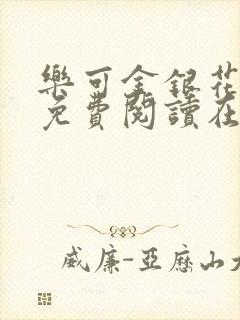 樂可金銀花
免費閱讀在
威廉-亞歷山大